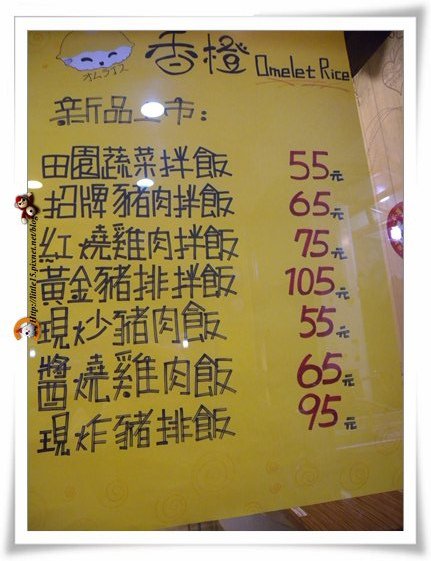 香橙 Omelet Rice
オムライス
新品上市：
田園蔬菜拌飯 55元
招牌豬肉拌飯 65元
紅燒雞肉拌飯 75元
黃金豬排拌飯 105元
現炒豬肉飯 55元
醬燒雞肉飯 65元
現炸豬排飯 95元